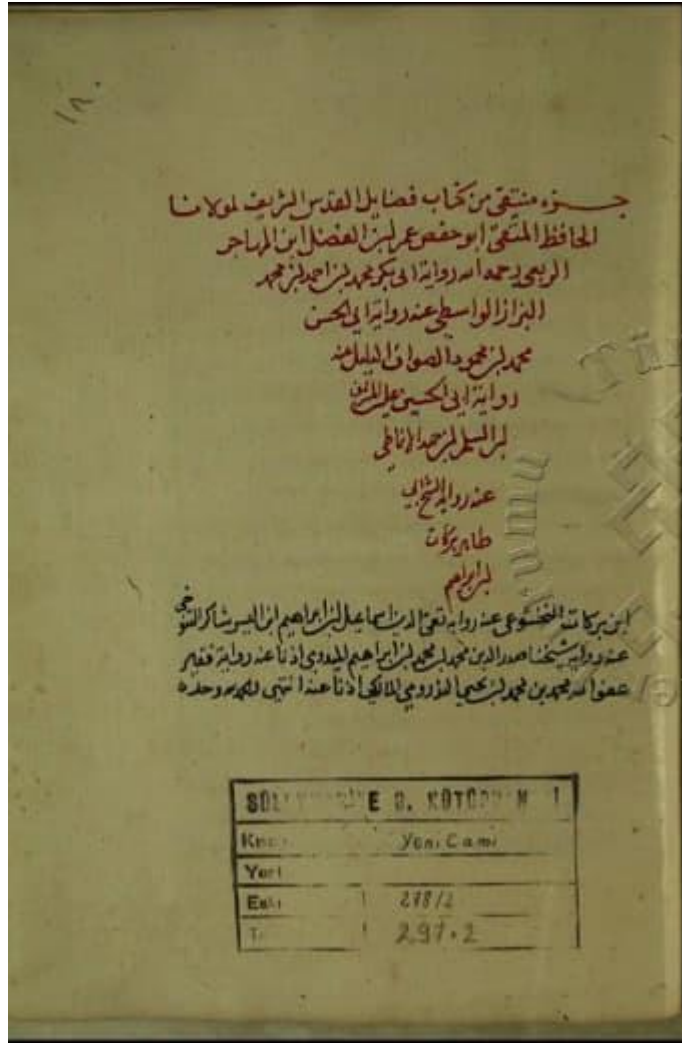 ١٨٠
جزء منتقى من كتاب فضايل القدس الشريف لمولانا
الحافظ المتقى ابو حفص عمر ابن الفضل ابن المهاجر
الربعى رحمه الله رواية ابى بكر محمد بن احمد بن محمد
البزاز الواسطى عنه رواية ابى الحسن
محمد بن محمود الصواف عنه
رواية ابى الحسين على
بن المسلم بن حمد الانماطى
عنه رواية الشيخ ابى
طاهر بركات
بن ابراهيم
ابن بركات الخشوعى عنه رواية تقى الدين اسماعيل بن ابراهيم ابن اليسر شاكر التنوخى
عنه رواية شيخنا صدر الدين محمد بن محمد بن ابراهيم الميدومى اذنا عنه رواية فقير
عفو الله محمد بن محمد بن يحيى المالكى اذنا عنه انتهى والحمد لله وحده
E KÜTÜP
Yeni Cami
Yeni
Eski 278/2
297.2